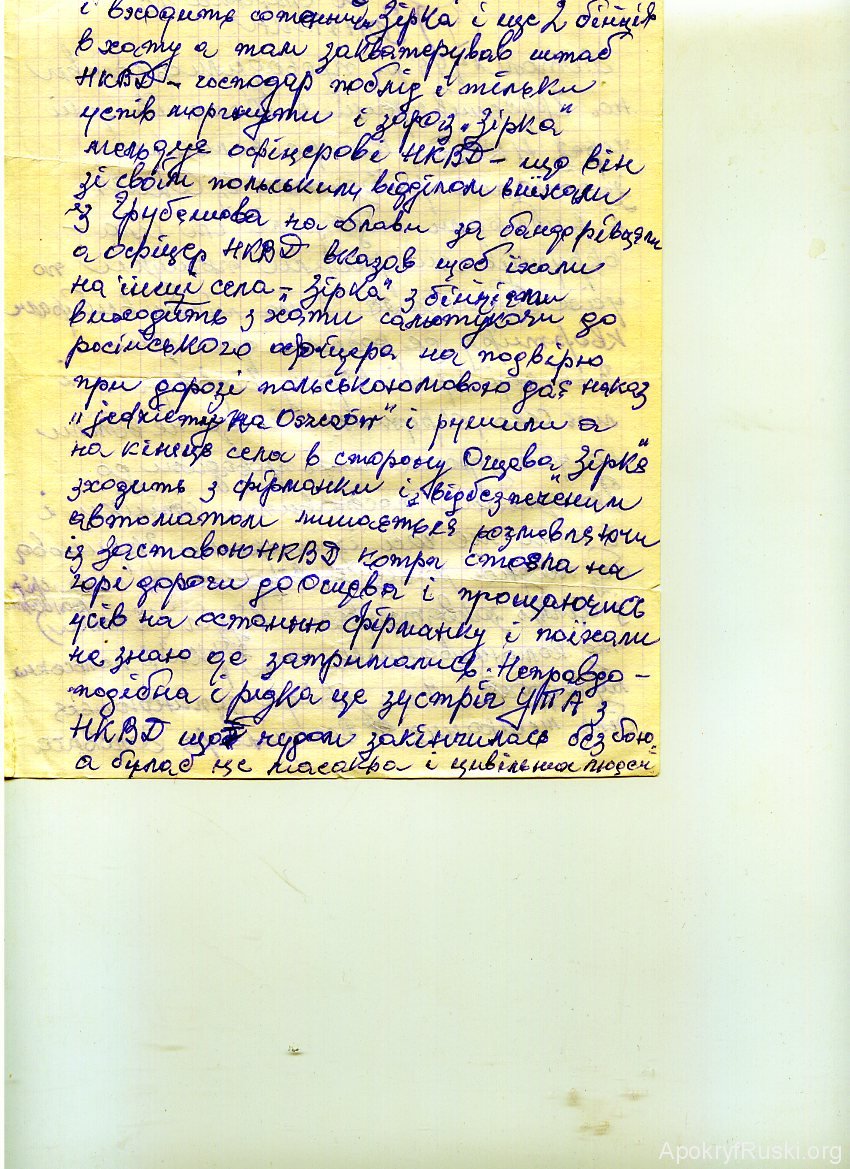 і входить сотенний Зірка і ще 2 бійців
в хату а там закватерував штаб
НКВД – господар поблід і тільки
успів моргнути і зараз „Зірка"
мельдує офіцерові НКВД – що він
зі своїм польським відділом виїхали
з Грубешова на облави за бандерівцями
а офіцер НКВД вказав щоб їхали
на інші села – „Зірка" з бійцями
виходить з хати сальютуючи до
російського офіцера на подвірю
при дорозі польською мовою дає наказ
„jedziemy na Oszczów" і рушили а
на кінець села в сторону Ощева „Зірка"
зходить з фірманки і з відбезпеченим
автоматом лишається розмовляючи
із заставою НКВД котра стояла на
горі дороги до Ощева і прощаючись
усів на останню фірманку і поїхали
не знаю де затримались. Неправдо-
подібна і рідка це зустріч УПА з
НКВД що чудом закінчилась без бою
а була б це масакра і цивільних людей
ApokryfRuski.org